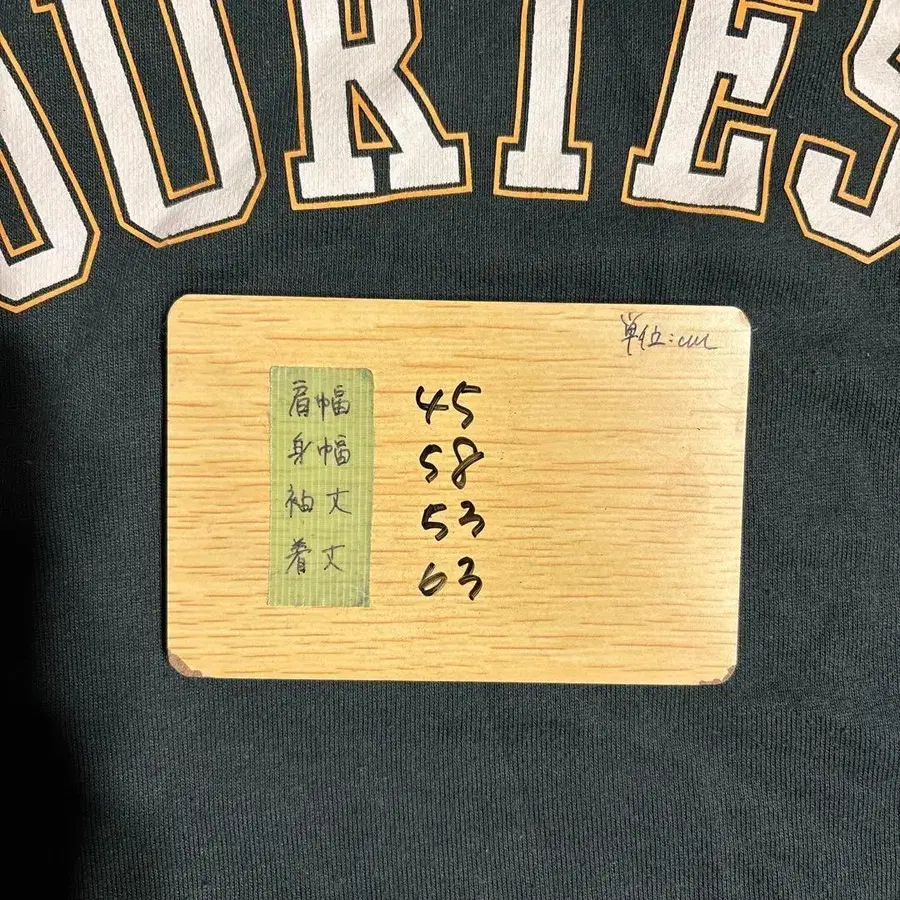 OURIES
単位:cm
肩幅 45
身幅 58
袖丈 53
着丈 63